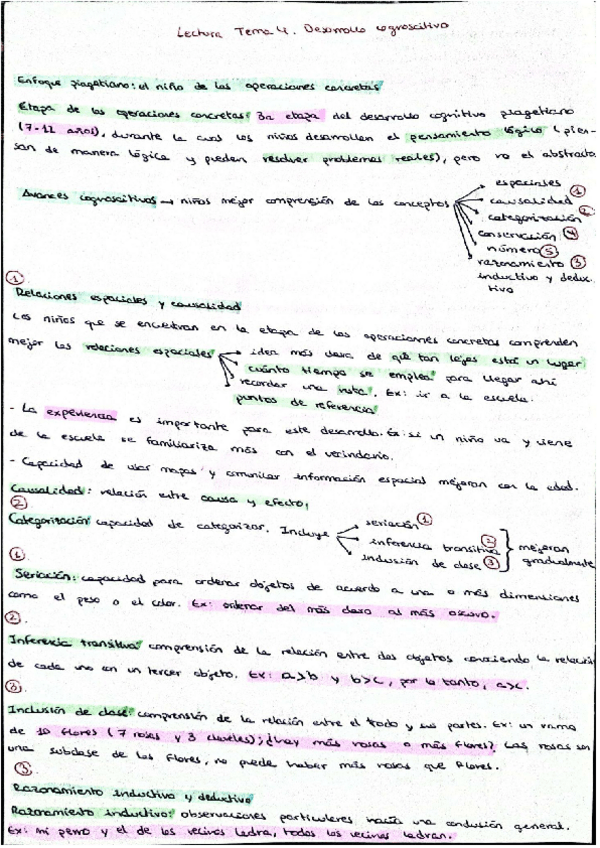 Lectura Tema 4. Desarrollo cognoscitivo
Enfoque piagetiano: el niño de las operaciones concretas
Etapa de las operaciones concretas: 3a etapa del desarrollo cognitivo piagetiano
(7-12 años), durante la cual los niños desarrollan el pensamiento lógico (pien-
san de manera lógica y pueden resolver problemas reales), pero no el abstracto
Avances cognoscitivos → niños mejor comprensión de los conceptos
espaciales ①
causalidad
categorización ②
conservación ④
número ⑤
razonamiento ③
inductivo y deduc-
tivo
①.
Relaciones espaciales y causalidad
Los niños que se encuentran en la etapa de las operaciones concretas comprenden
mejor las relaciones espaciales
idea más clara de qué tan lejos está un lugar
cuánto tiempo se emplea para llegar ahí
recordar una ruta. Ex: ir a la escuela.
puntos de referencia
- La experiencia es importante para este desarrollo. Ex: si un niño va y viene
de la escuela se familiariza más con el vecindario.
- Capacidad de usar mapas y comunicar información espacial mejoran con la edad.
Causalidad: relación entre causa y efecto,
②.
Categorización capacidad de categorizar. Incluye
seriación ①
inferencia transitiva ②
inclusión de clase ③
mejoran
gradualmente
①.
Seriación: capacidad para ordenar objetos de acuerdo a una o más dimensiones
como el peso o el color. Ex: ordenar del más claro al más oscuro.
②.
Inferencia transitiva: comprensión de la relación entre dos objetos conociendo la relación
de cada uno con un tercer objeto. Ex: a>b y b>c, por lo tanto, a>c.
③.
Inclusión de clase: comprensión de la relación entre el todo y sus partes. Ex: un ramo
de 10 flores (7 rosas y 3 claveles); ¿hay más rosas o más flores? Las rosas son
una subclase de las flores, no puede haber más rosas que flores.
③.
Razonamiento inductivo y deductivo
Razonamiento inductivo: observaciones particulares hacia una conclusión general.
Ex: mi perro y el de los vecinos ladra, todos los vecinos ladran.